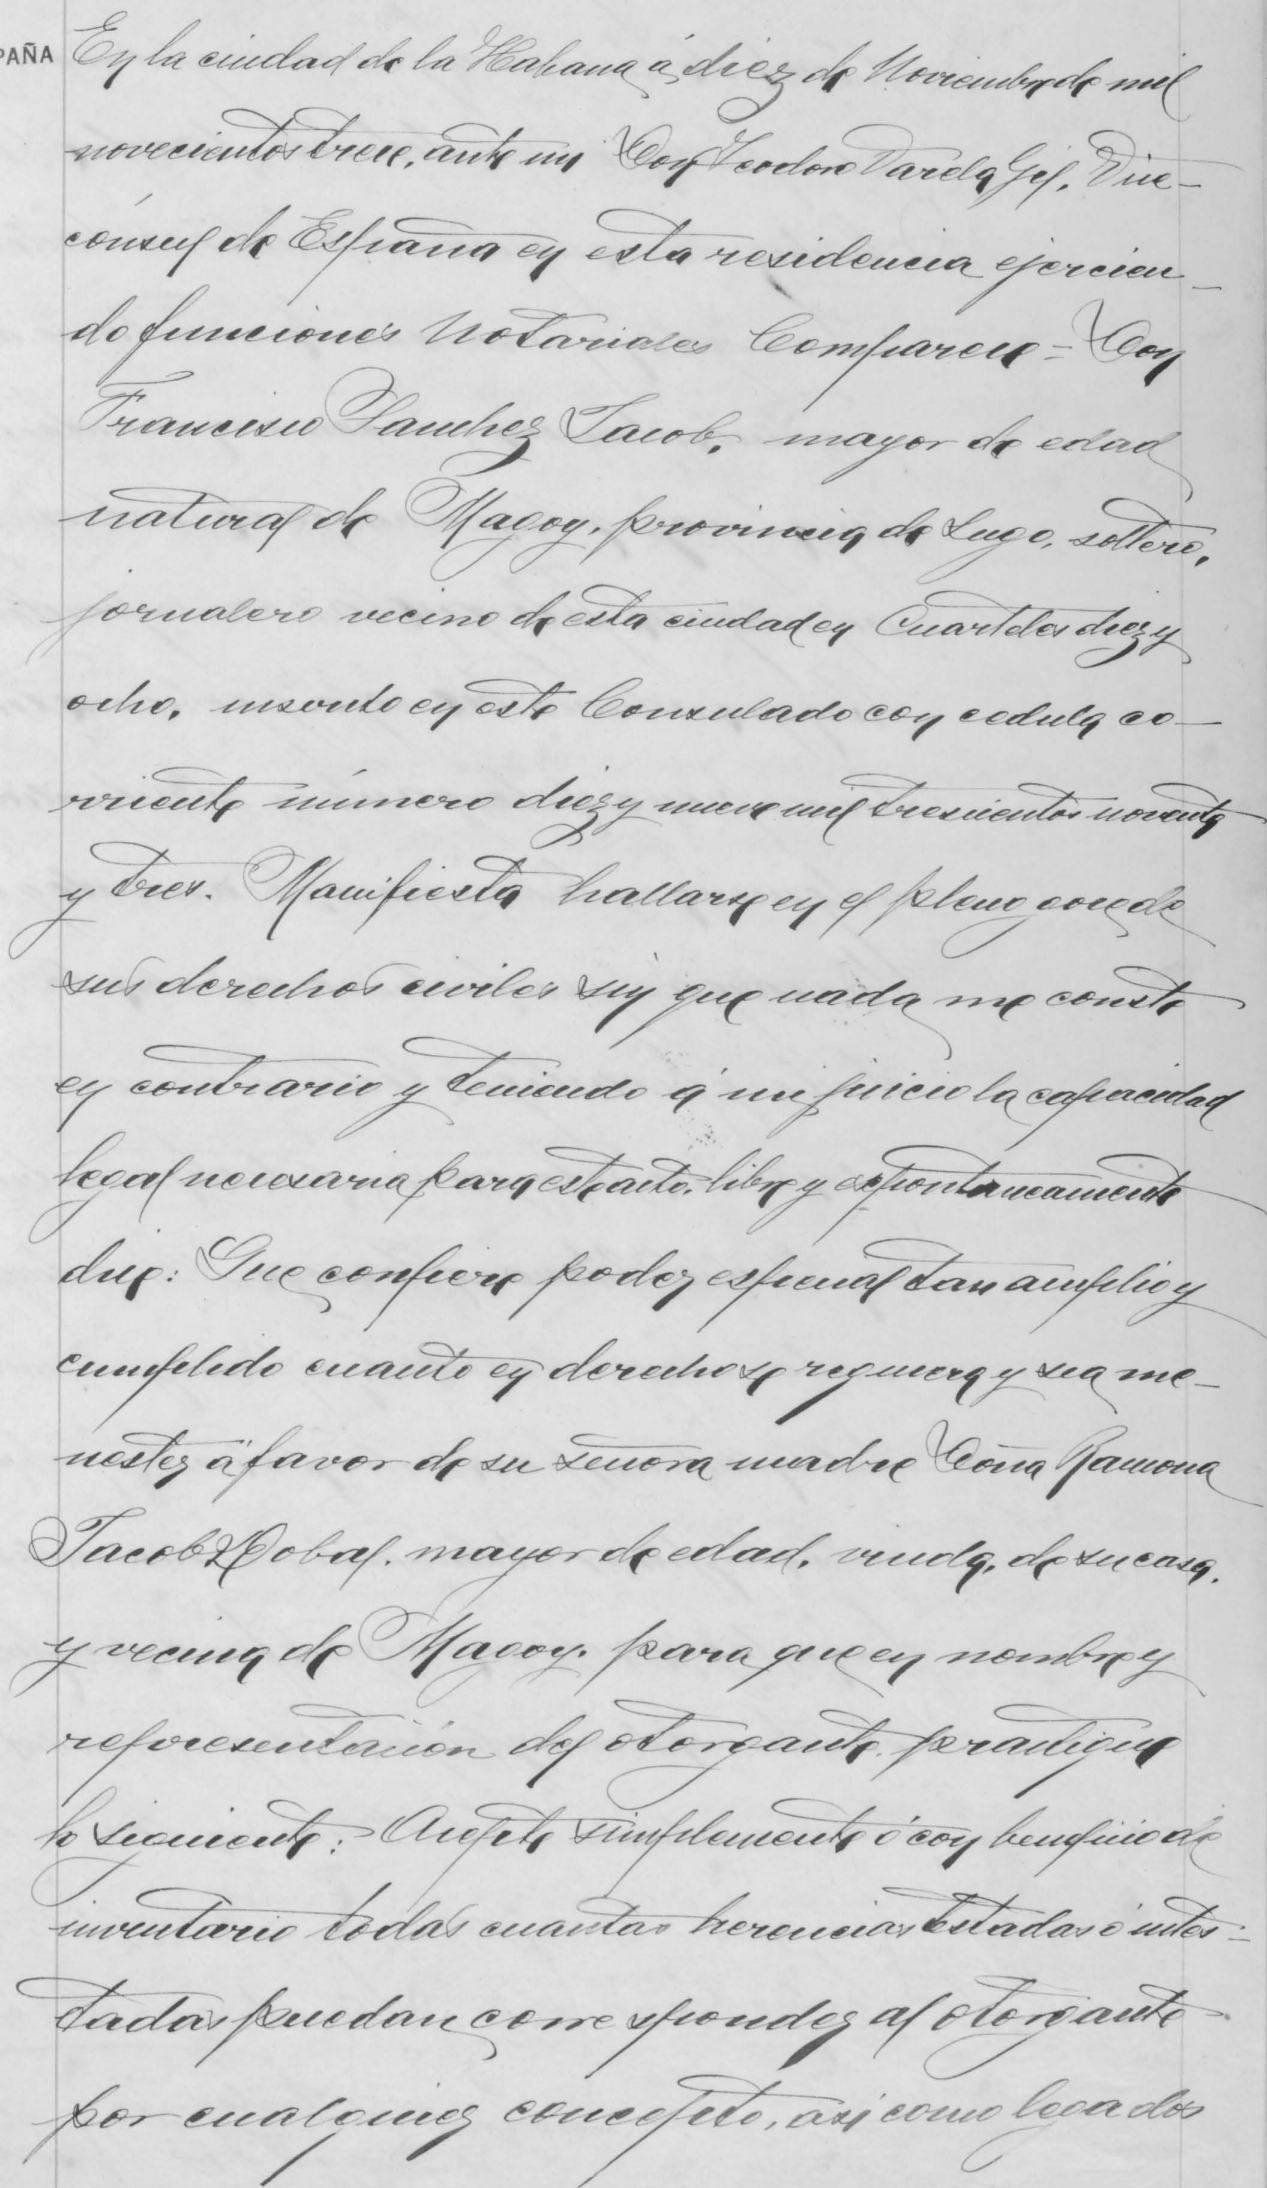 PAÑA
En la ciudad de la Habana á diez de Noviembre de mil
novecientos trece, ante mi Don Teodoro Varela Gil, Vice-
cónsul de España en esta residencia ejercien-
do funciones Notariales Comparece = Don
Francisco Sanchez Jacob, mayor de edad
natural de Magoy, provincia de Lugo, soltero,
jornalero vecino de esta ciudad en Cuarteles diez y
ocho, inscrito en este Consulado con cedula co-
rriente número diez y nueve mil trescientos noventa
y tres. Manifiesta hallarse en el pleno goce de
sus derechos civiles sin que nada me conste
en contrario y teniendo á mi juicio la capacidad
legal necesaria para este acto, libre y espontaneamente
dice: Que confiere poder especial tan amplio y
cumplido cuanto en derecho se requiera y sea me-
nester á favor de su señora madre Doña Ramona
Jacob Dobal, mayor de edad, viuda, de su casa,
y vecina de Magoy, para que en nombre y
representación del otorgante, practique
lo siguiente: Acepte simplemente ó con beneficio de
inventario todas cuantas herencias testadas ó intes-
tadas puedan corresponder al otorgante
por cualquier concepto, asi como legados